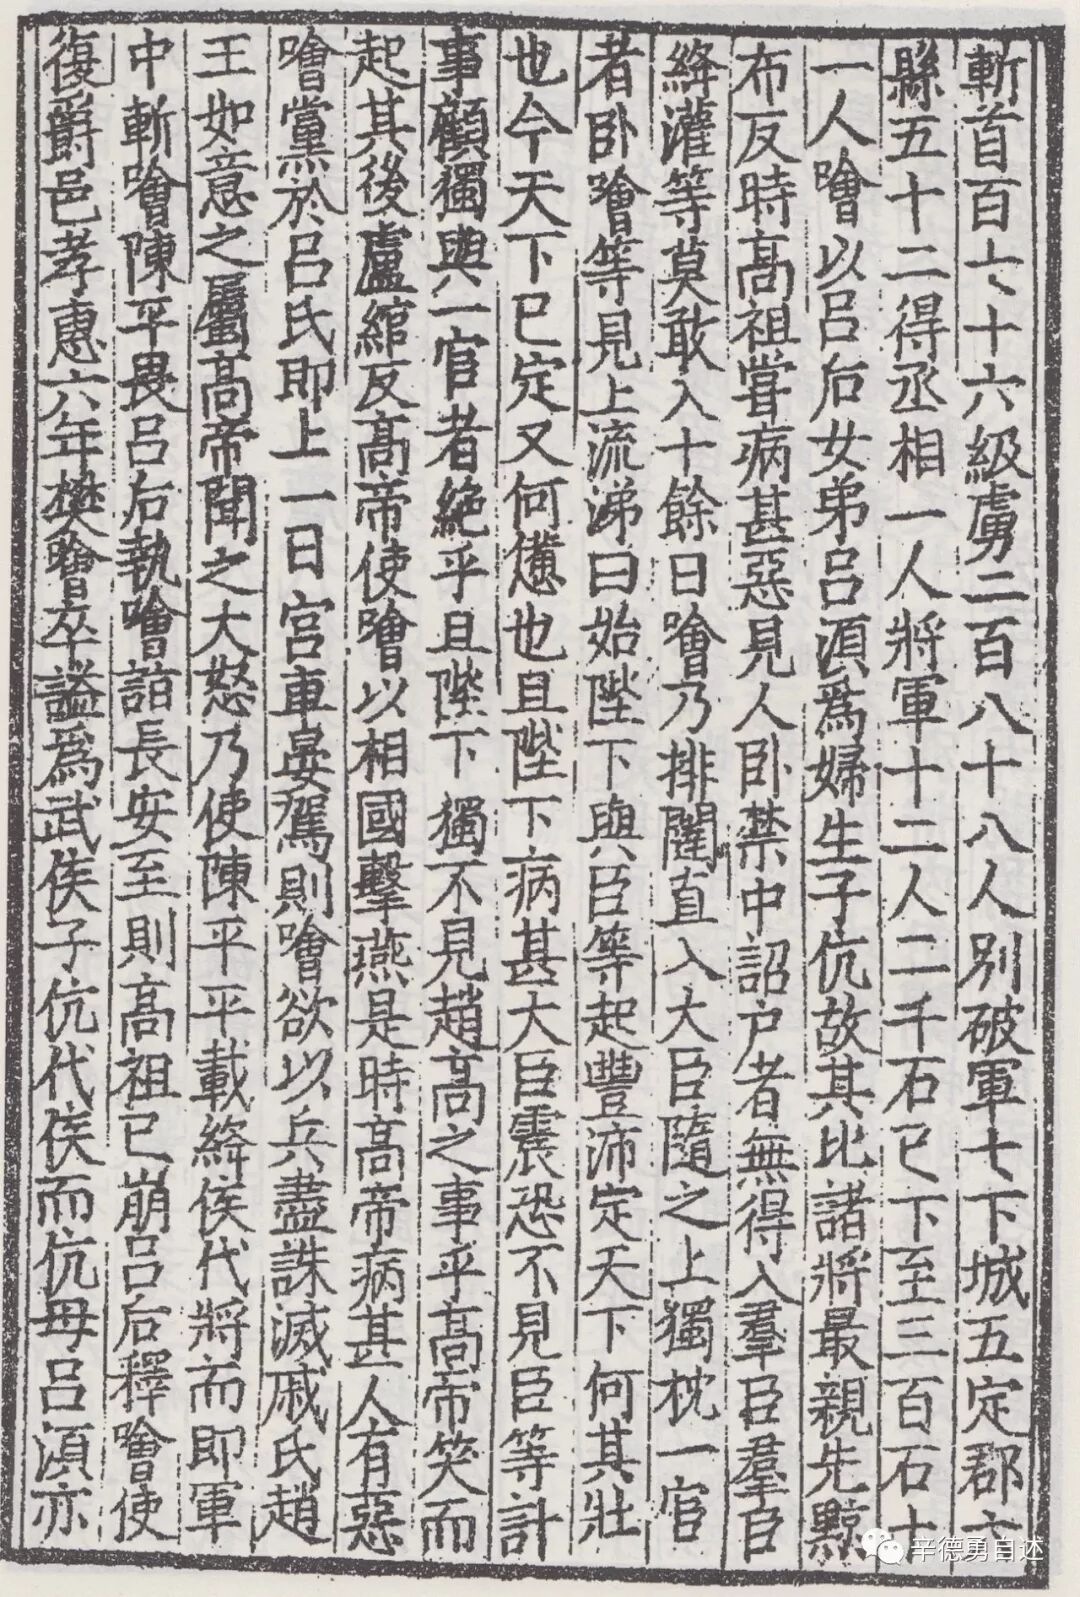 斬首百七十六級虜二百八十八人別破軍七下城五定郡六
縣五十二得丞相一人將軍十二人二千石已下至三百石十
一人噲以呂后女弟呂湏爲婦生子伉故其比諸將最親先黥
布反時髙祖甞病甚惡見人卧禁中詔户者無得入羣臣羣臣
絳灌等莫敢入十餘日噲乃排闥直入大臣隨之上獨枕一宦
者卧噲等見上流涕曰始陛下與臣等起豐沛定天下何其壯
也今天下已定又何憊也且陛下病甚大臣震恐不見臣等計
事顧獨與一宦者絶乎且陛下獨不見趙髙之事乎髙帝笑而
起其後盧綰反髙帝使噲以相國擊燕是時髙帝病甚人有惡
噲黨於呂氏即上一日宫車晏駕則噲欲以兵盡誅滅戚氏趙
王如意之屬髙帝聞之大怒乃使陳平平載絳侯代將而即軍
中斬噲陳平畏呂后執噲詣長安至則髙祖已崩呂后釋噲使
復爵邑孝惠六年樊噲卒謚爲武侯子伉代侯而伉母呂湏亦
辛德勇自述